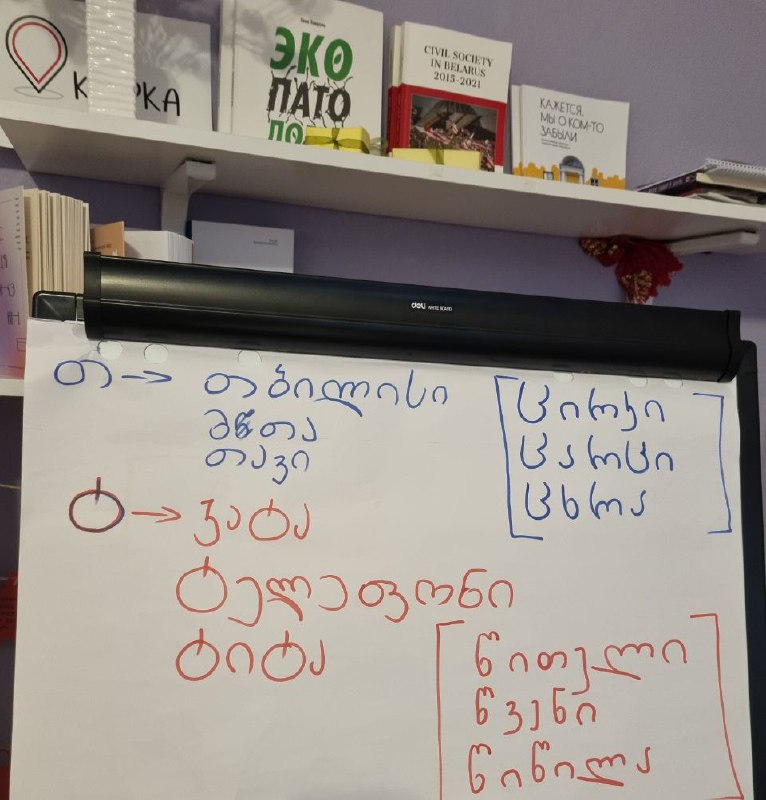 ЭКО
ПАТО
CIVIL SOCIETY
IN BELARUS
2015-2021
КАЖЕТСЯ,
МЫ О КОМ-ТО
ЗАБЫЛИ
deli WHITE BOARD
თ → თბილისი
მთა
თავი
[ცირკი
ცარცი
ცხრა]
ტ → კატა
ტელეფონი
ტიტა
[წითელი
წვენი
წიწილა]